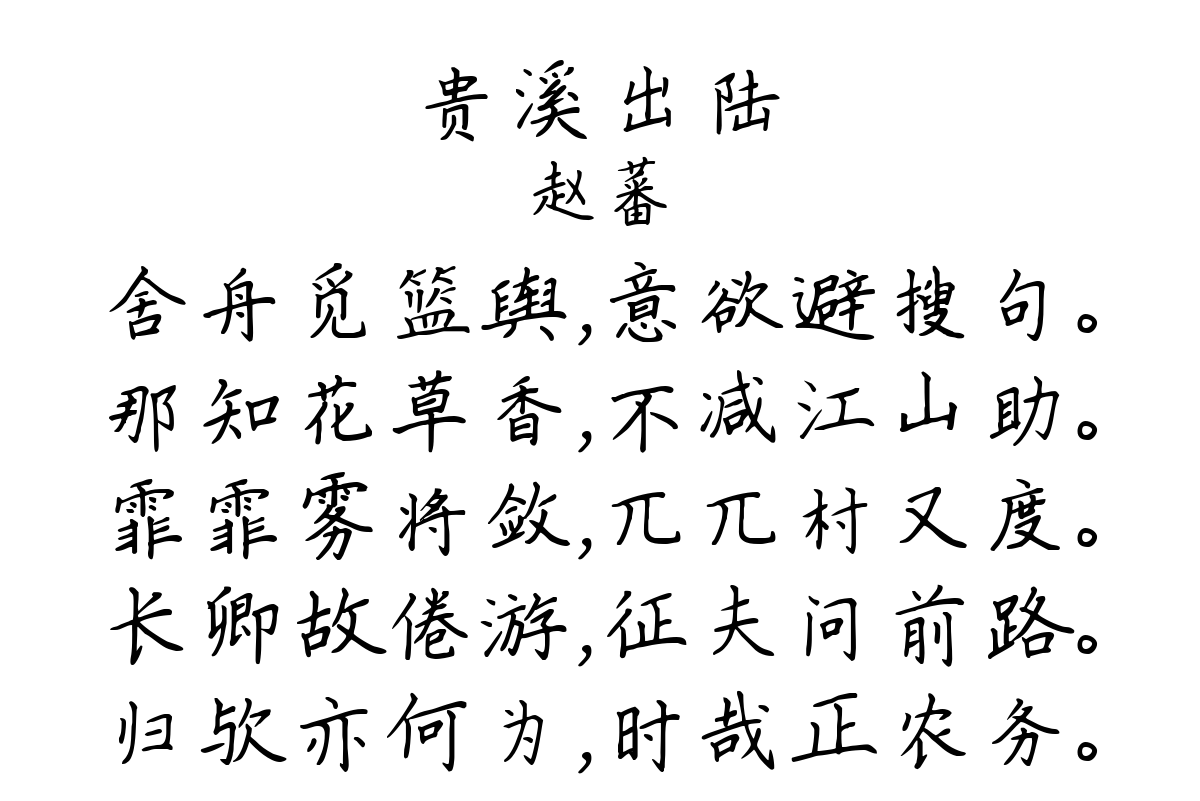 贵溪出陆
赵蕃
舍舟觅篮舆,意欲避搜句。
那知花草香,不减江山助。
霏霏雾将敛,兀兀村又度。
长卿故倦游,征夫问前路。
归欤亦何为,时哉正农务。